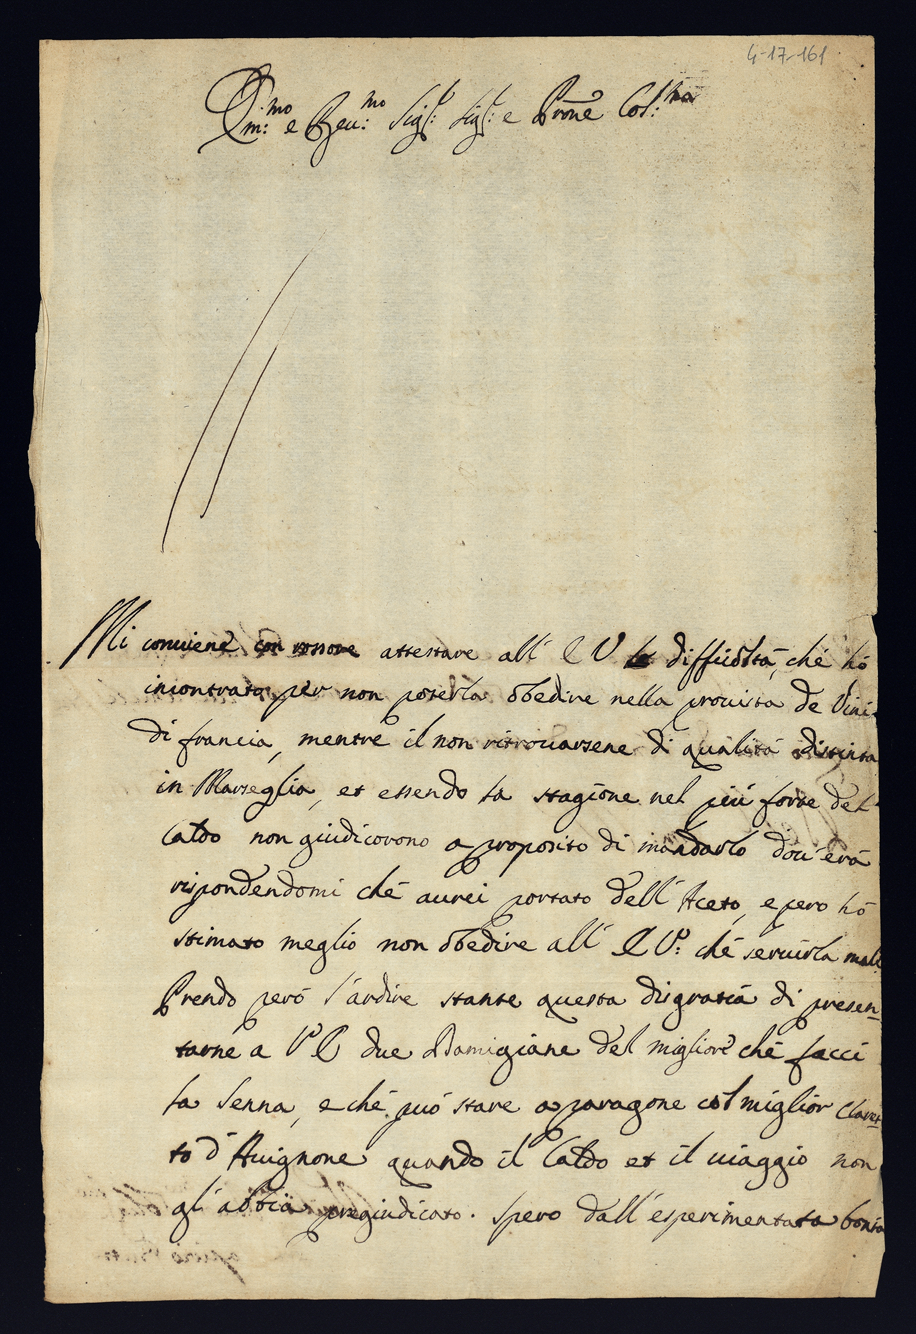 4-17-161
Em:mo e Reu:mo Sig:r Sig:r e Prone Col:mo
Mi conuiene con rossore attestare all' E V le difficoltà, ché hò
incontrato per non poterla obedire nella prouista de Vini
di francia, mentre il non ritrouarsene di qualità distinta
in Marseglia, et essendo la stagione nel più forte del
Caldo non giudicorono a proposito di mandarlo
rispondendomi ché aurei portato dell' Aceto, e pero hò
stimato meglio non obedire all' E V: ché seruirla male
Prendo però l'ardire stante questa disgratia di presen=
tarne a V E due Damigiane del migliore ché facci
la Senna, e ché può stare a paragone col miglior Claret=
to d'Auignone quando il Caldo et il uiaggio non
gl' abbia pregiudicato. Spero dall' esperimentata bontà